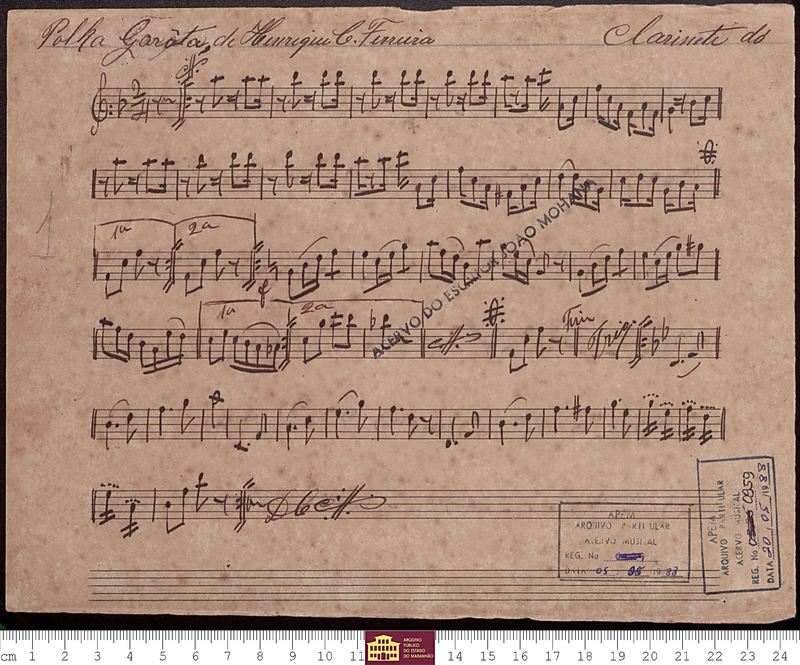 Polka Garôta de Henrique C. Ferreira Clarinete do
1a 2a
1a 2a
Fim Trio
D C
ACERVO DO ESCRITOR JOÃO MOHANA
APEM
ARQUIVO PARTICULAR
ACERVO MUSICAL
REG. No
DATA 05 05 1988
APEM
ARQUIVO PARTICULAR
ACERVO MUSICAL
REG. No 0959
DATA 20/05/1988
cm 1 2 3 4 5 6 7 8 9 10 11 14 15 16 17 18 19 20 21 22 23 24
ARQUIVO
PÚBLICO
DO ESTADO DO
MARANHÃO